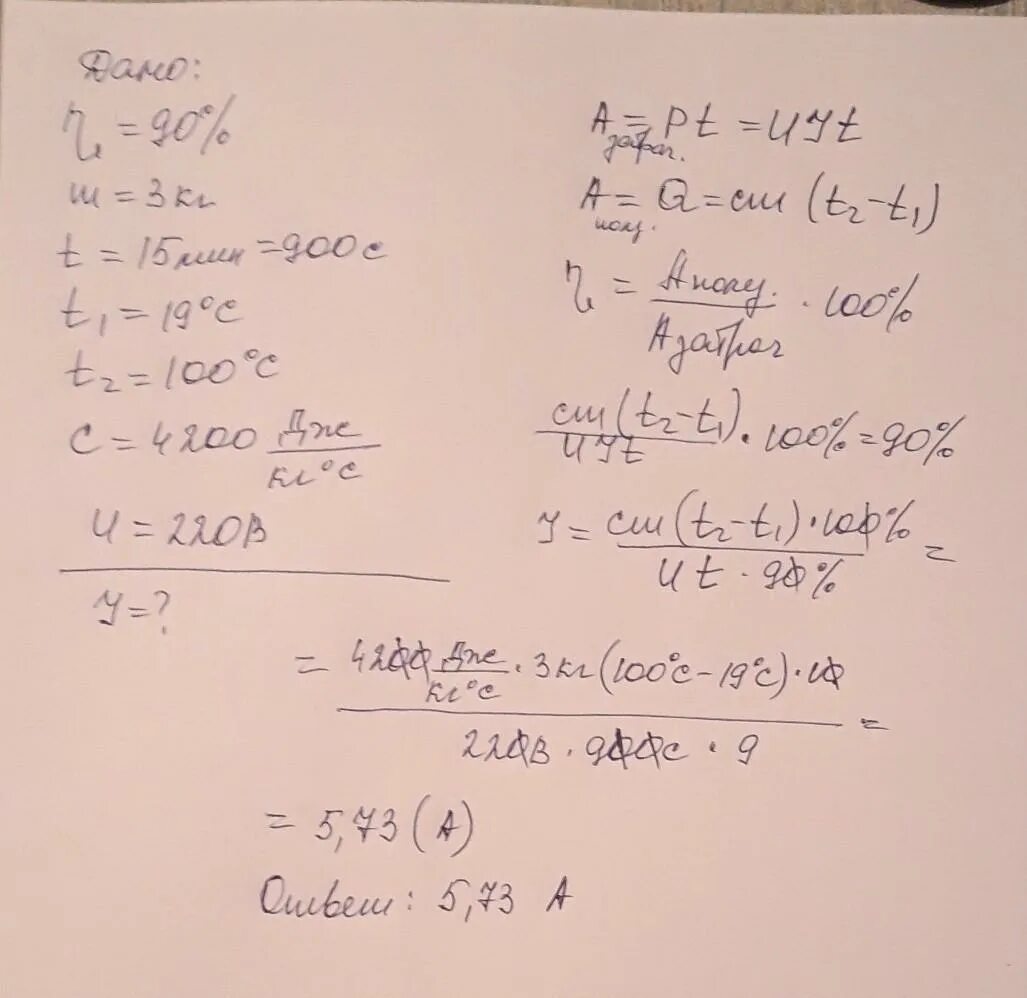 Дано:
η = 90%
m = 3 кг
t = 15 мин = 900 с
t₁ = 19°C
t₂ = 100°C
c = 4200 Дж/кг°C
U = 220 В
I = ?
A затрач. = Pt = UIt
A полез. = Q = cm (t₂ - t₁)
η = A полез. / A затрач · 100%
cm(t₂ - t₁) / UIt · 100% = 90%
I = cm(t₂ - t₁) · 100% / Ut · 90% =
= 4200 Дж/кг°C · 3 кг (100°C - 19°C) · 10 / 220 В · 900 с · 9 =
= 5,73 (А)
Ответ: 5,73 А